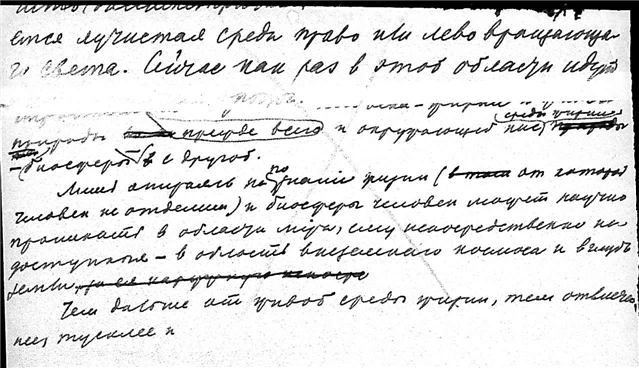 ется лучистая среда право или лево вращающа-
го света. Сейчас как раз в этой области идут
природы прежде всего и окружающей нас среды жизни
- биосферы в с другой.
Лишь опираясь на познание жизни (от которой
человек не отделим) и биосферы человек может научно
проникать в области мира, ему непосредственно не-
доступные - в область внеземного космоса и вглубь
земли
Чем дальше от живой среды жизни, тем отвлечен-
нее, тусклее и